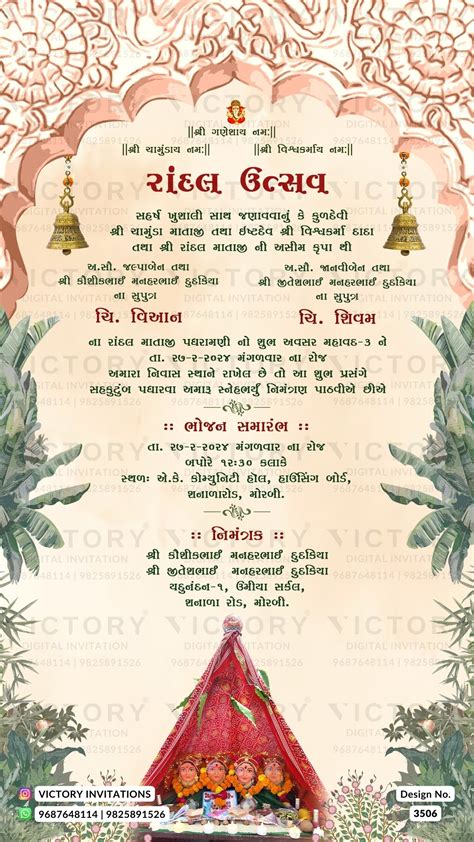 ||શ્રી ગણેશાય નમઃ||
||શ્રી ચામુંડાય નમઃ|| ||શ્રી વિશ્વકર્માય નમઃ||
રાંદલ ઉત્સવ
સહર્ષ ખુશાલી સાથ જણાવવાનું કે કુળદેવી
શ્રી ચામુંડા માતાજી તથા ઇષ્ટદેવ શ્રી વિશ્વકર્મા દાદા
તથા શ્રી રાંદલ માતાજી ની અસીમ કૃપા થી
અ.સૌ. જલ્પાબેન તથા
શ્રી કૌશીકભાઈ મનહરભાઈ દુદકિયા
ના સુપુત્ર
ચિ. વિઆન
અ.સૌ. જાનવીબેન તથા
શ્રી જીતેશભાઈ મનહરભાઈ દુદકિયા
ના સુપુત્ર
ચિ. શિવમ
ના રાંદલ માતાજી પધરામણી નો શુભ અવસર મહાવદ-૩ ને
તા. ૨૭-૨-૨૦૨૪ મંગળવાર ના રોજ
અમારા નિવાસ સ્થાને રાખેલ છે તો આ શુભ પ્રસંગે
સહકુટુંબ પધારવા અમારૂ સ્નેહભર્યું નિમંત્રણ પાઠવીએ છીએ
:: ભોજન સમારંભ ::
તા. ૨૭-૨-૨૦૨૪ મંગળવાર ના રોજ
બપોરે ૧૨:૩૦ કલાકે
સ્થળઃ એ.કે. કોમ્યુનિટી હોલ, હાઉસિંગ બોર્ડ,
શનાળારોડ, મોરબી.
:: નિમંત્રક ::
શ્રી કૌશીકભાઈ મનહરભાઈ દુદકિયા
શ્રી જીતેશભાઈ મનહરભાઈ દુદકિયા
યદુનંદન-૧, ઉમીયા સર્કલ,
શનાળા રોડ, મોરબી.
VICTORY INVITATIONS
9687648114 | 9825891526
Design No.
3506
VICTORY
DIGITAL INVITATION
9687648114 | 9825891526